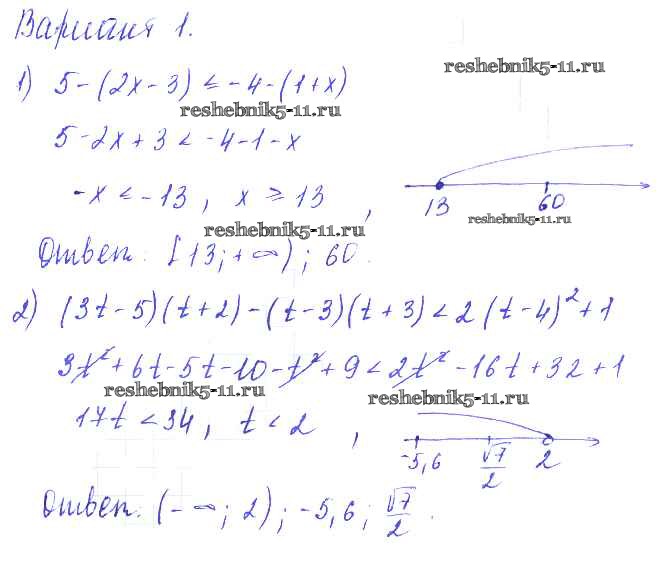 Вариант 1.
1) 5-(2x-3) ≤ -4-(1+x)
reshebnik5-11.ru
reshebnik5-11.ru
5-2x+3 < -4-1-x
-x ≤ -13, x ≥ 13,
13 60
reshebnik5-11.ru
reshebnik5-11.ru
Ответ: [13;+∞); 60.
2) (3t-5)(t+2)-(t-3)(t+3)<2(t-4)²+1
3t²+6t-5t-10-t²+9<2t²-16t+32+1
reshebnik5-11.ru
reshebnik5-11.ru
17t<34, t<2,
-5,6 √7/2 2
Ответ: (-∞; 2); -5,6; √7/2.